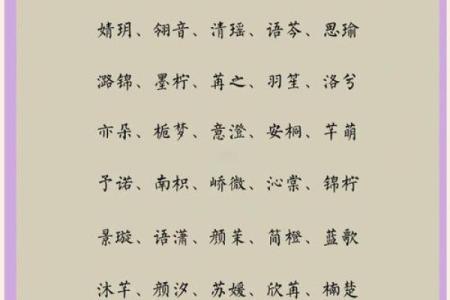 婧玥、翎音、清瑶、语芩、思瑜
潞锦、墨柠、苒之、羽笙、洛兮
亦朵、栀梦、意澄、安桐、芊萌
予诺、南枳、峤微、沁棠、锦柠
景璇、语潇、颜茉、简橙、蓝歌
沐芊、颜汐、苏媛、欣苒、楠楚